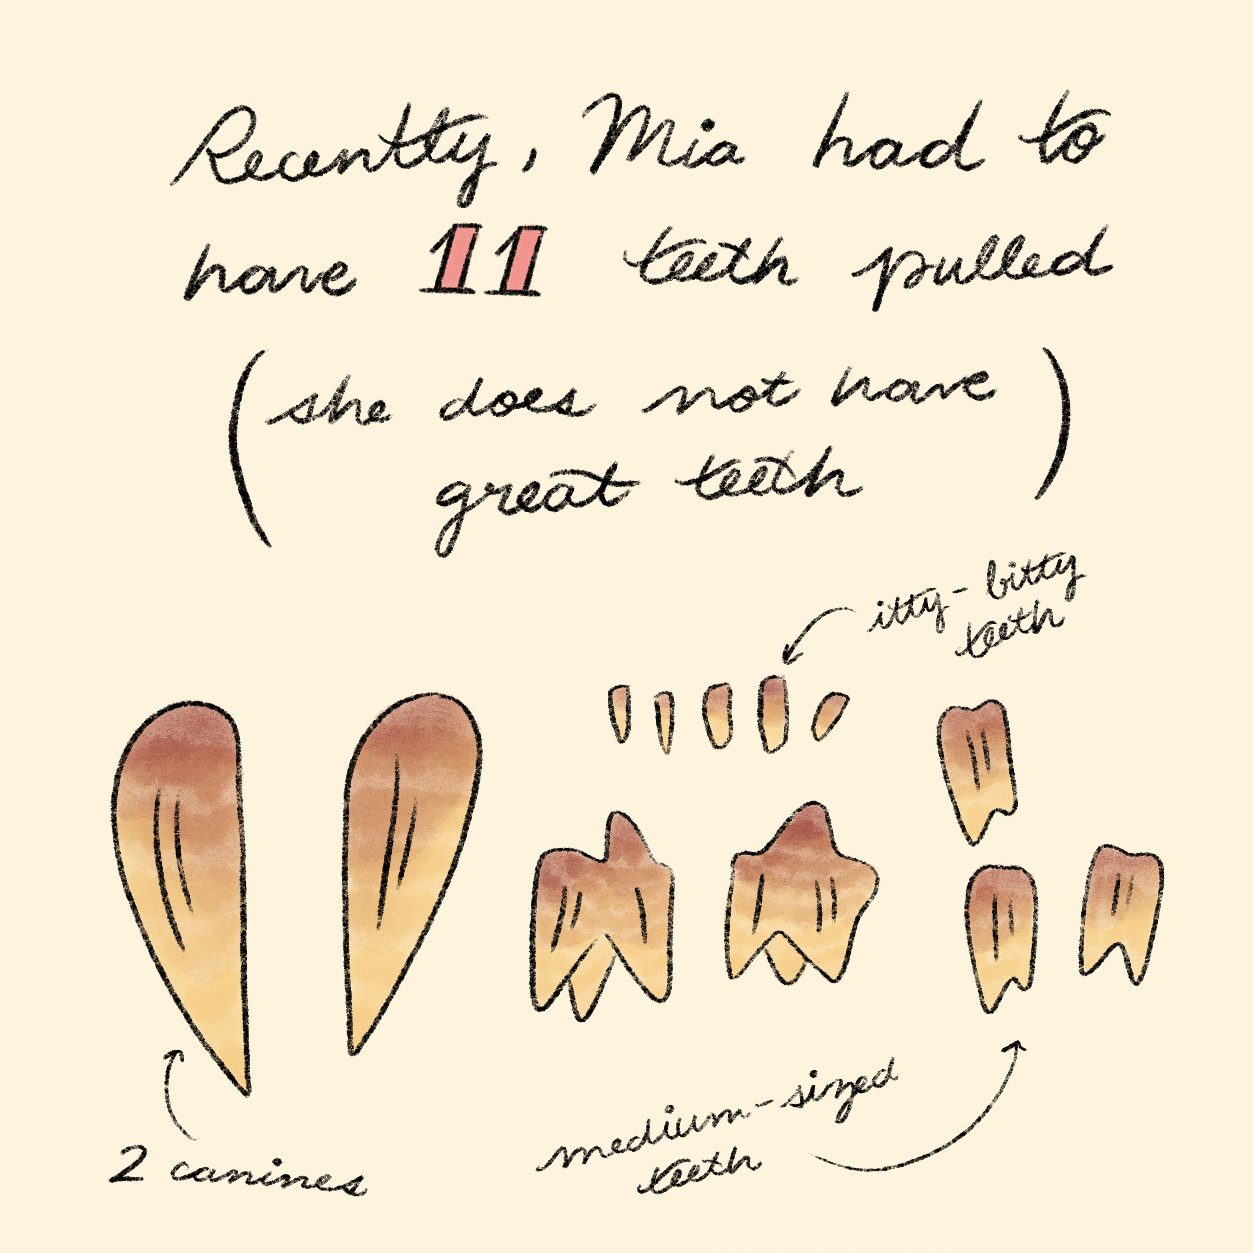 Recently, Mia had to
have 11 teeth pulled
(she does not have
great teeth)
itty-bitty
teeth
2 canines
medium-sized
teeth